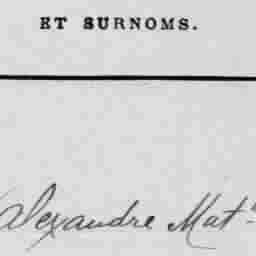 ET SURNOMS.
Alexandre Mat